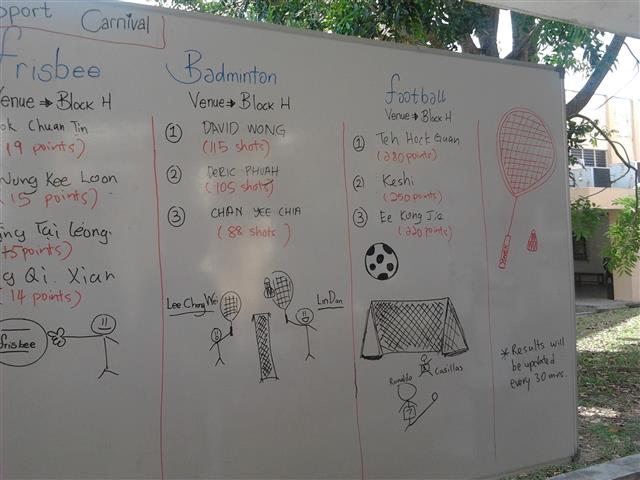 pport Carnival
frisbee
Venue → Block H
ok Chuan Tin
(19 points)
Wung Kee Loon
(15 points)
ing Tai Leong
points)
g Qi Xian
(14 points)
frisbee
Badminton
Venue → Block H
1 DAVID WONG
(115 shots)
2 DERIC PHUAH
(105 shots)
3 CHAN YEE CHIA
(88 shots)
Lee Chong Wei
Lin Dan
football
Venue → Block H
1 Teh Hock Guan
(280 points)
2 Keshi
(250 points)
3 Ee Kung Jie
(220 points)
Casillas
Ronaldo
7
* Results will
be updated
every 30 mins.